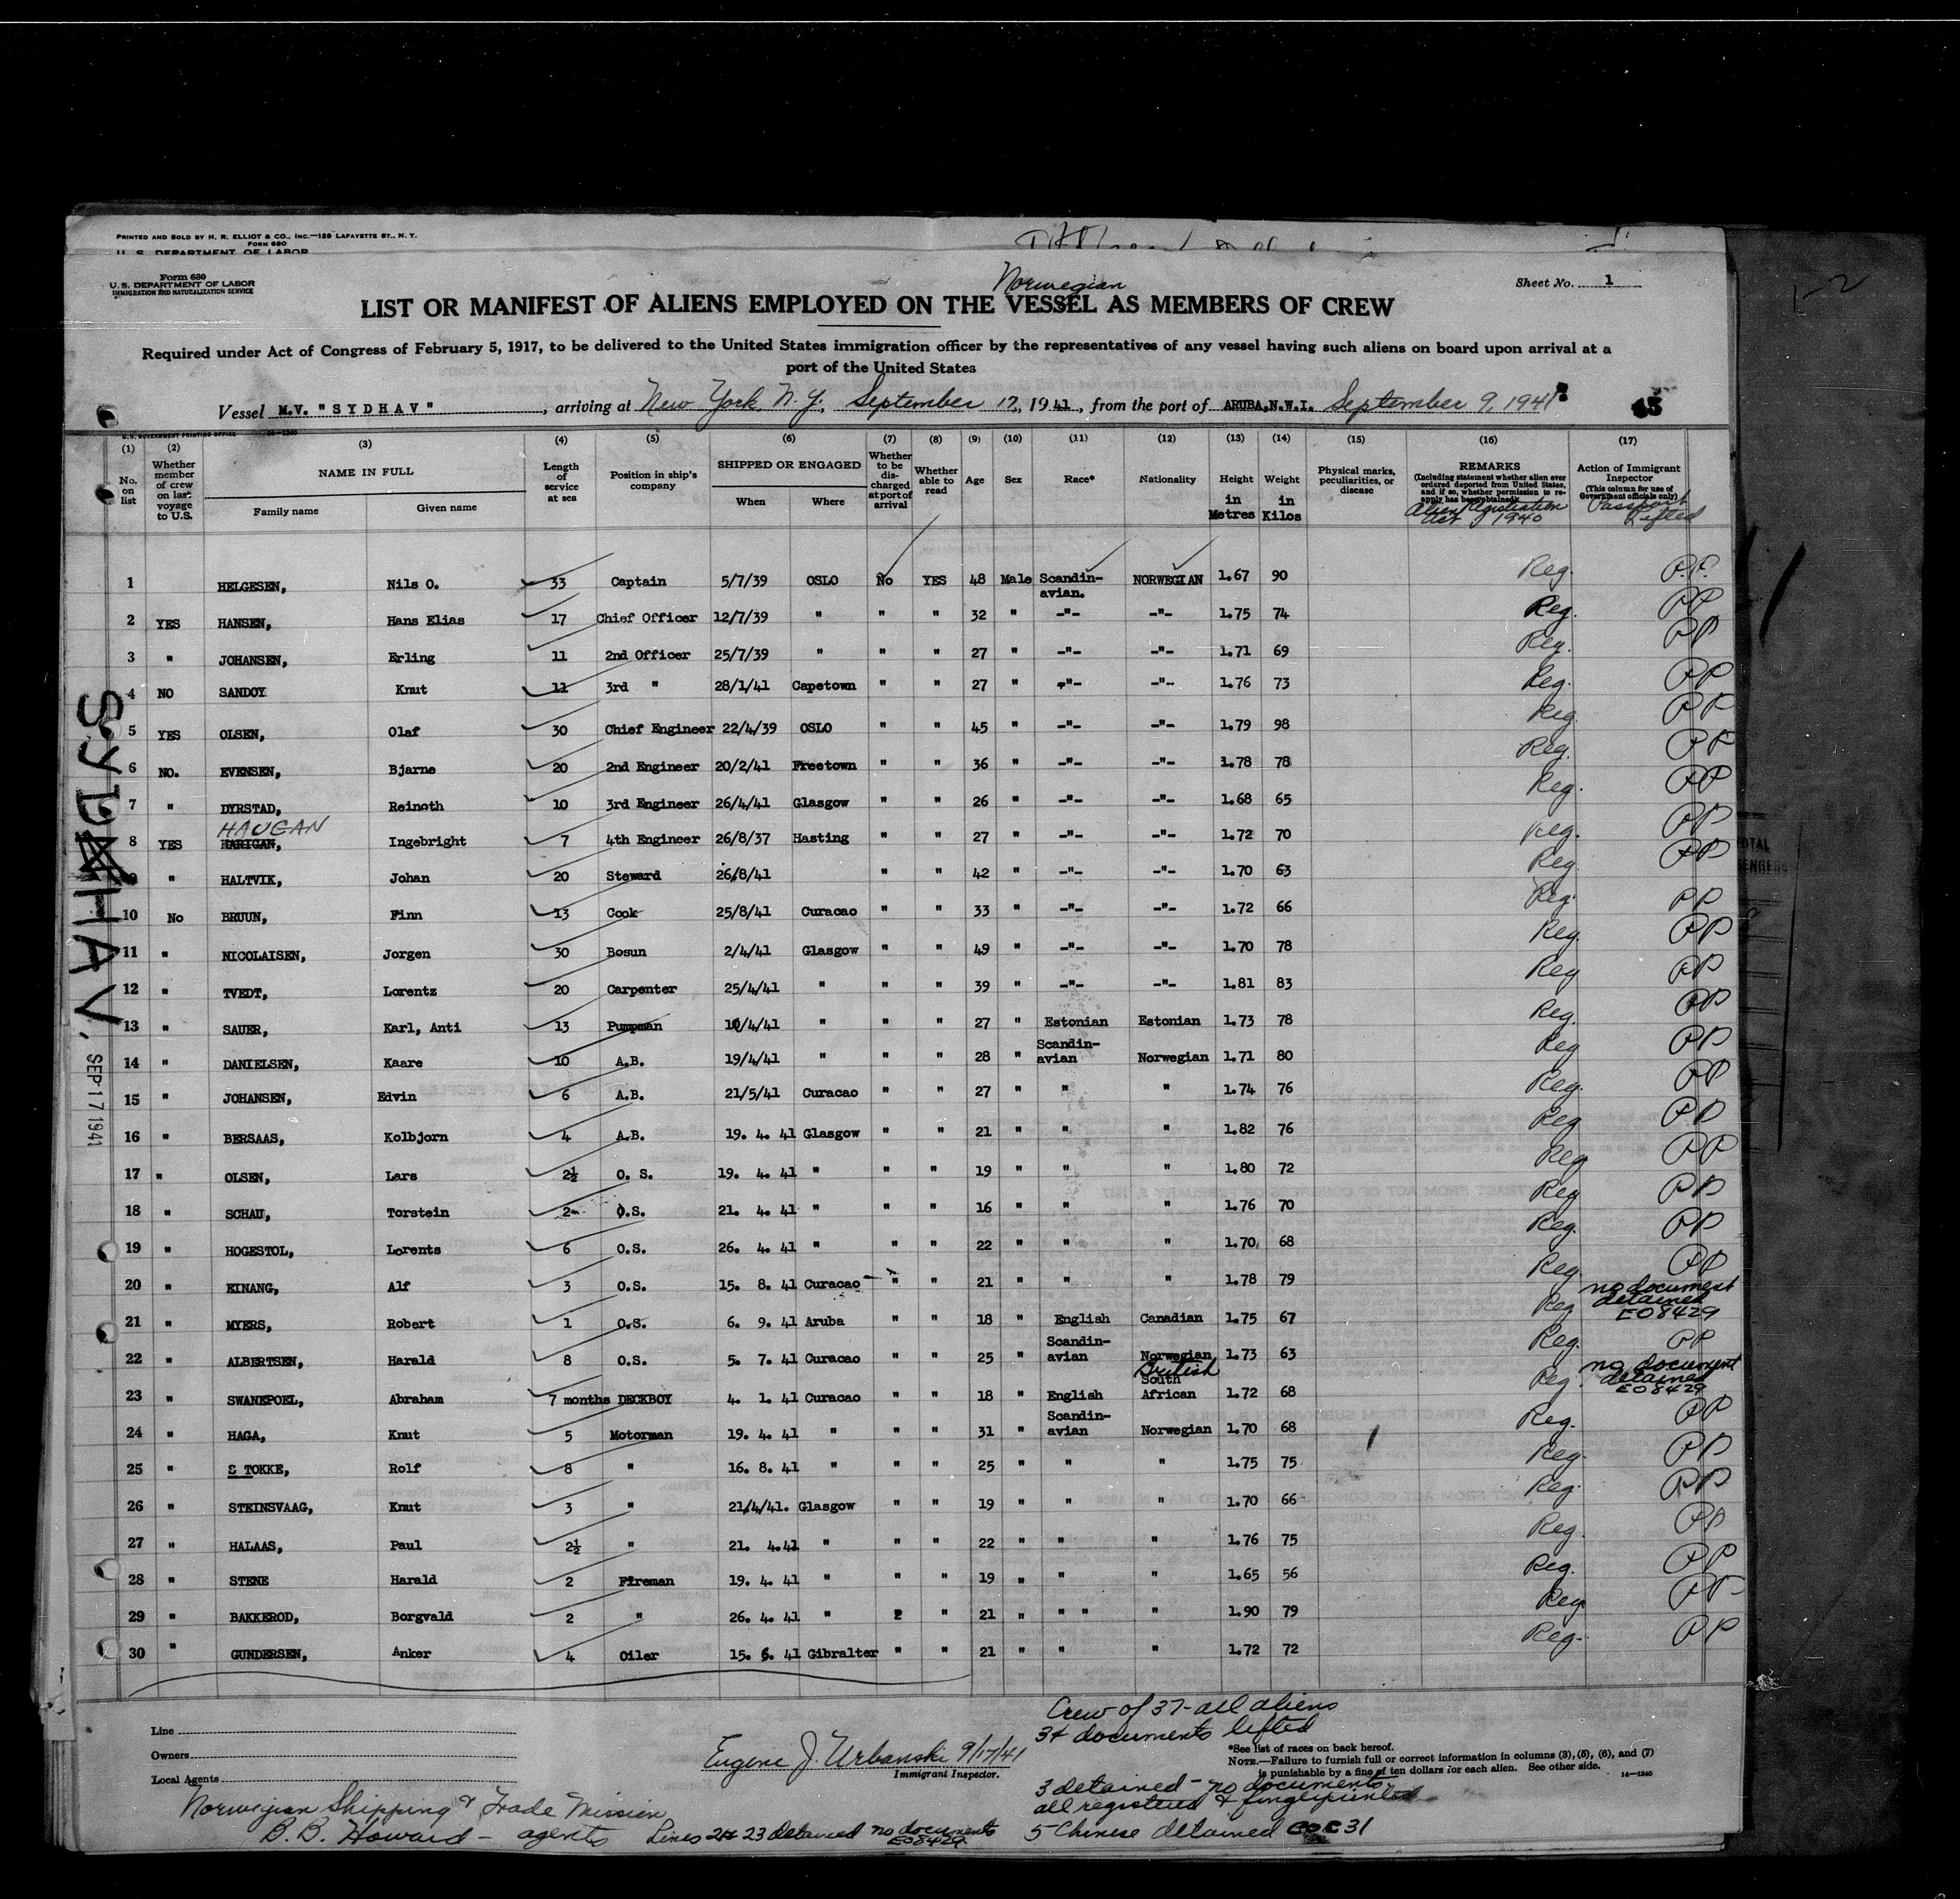 PRINTED AND SOLD BY H. R. ELLIOT & CO., INC.—129 LAFAYETTE ST., N. Y.
FORM 680
U. S. DEPARTMENT OF LABOR
Form 680
U. S. DEPARTMENT OF LABOR
IMMIGRATION AND NATURALIZATION SERVICE
Norwegian
Sheet No. 1
LIST OR MANIFEST OF ALIENS EMPLOYED ON THE VESSEL AS MEMBERS OF CREW
Required under Act of Congress of February 5, 1917, to be delivered to the United States immigration officer by the representatives of any vessel having such aliens on board upon arrival at a
port of the United States
Vessel M.V. "SYDHAV", arriving at New York, N.Y., September 17, 1941, from the port of ARUBA,N.W.I. September 9, 1941
U.S. GOVERNMENT PRINTING OFFICE 14—1240
(1) (2) (3) (4) (5) (6) (7) (8) (9) (10) (11) (12) (13) (14) (15) (16) (17)
No. on list
Whether member of crew on last voyage to U.S.
NAME IN FULL
Family name
Given name
Length of service at sea
Position in ship's company
SHIPPED OR ENGAGED
When
Where
Whether to be discharged at port of arrival
Whether able to read
Age
Sex
Race*
Nationality
Height in Metres
Weight in Kilos
Physical marks, peculiarities, or disease
REMARKS
(Including statement whether alien ever ordered deported from United States, and if so, whether permission to re-apply has been obtained)
Alien Registration Act of 1940
Action of Immigrant Inspector
(This column for use of Government officials only)
Passport lifted
1 HELGESEN, Nils O. 33 Captain 5/7/39 OSLO No YES 48 Male Scandin-avian. NORWEGIAN 1.67 90 Reg. P.P.
2 YES HANSEN, Hans Elias 17 Chief Officer 12/7/39 " " " 32 " -"- -"- 1.75 74 Reg. PP
3 " JOHANSEN, Erling 11 2nd Officer 25/7/39 " " " 27 " -"- -"- 1.71 69 Reg. PP
4 NO SANDOY Knut 11 3rd " 28/1/41 Capetown " " 27 " -"- -"- 1.76 73 Reg. PP
5 YES OLSEN, Olaf 30 Chief Engineer 22/4/39 OSLO " " 45 " -"- -"- 1.79 98 Reg. PP
6 NO. EVENSEN, Bjarne 20 2nd Engineer 20/2/41 Freetown " " 36 " -"- -"- 1.78 78 Reg. PP
7 " DYRSTAD, Reinoth 10 3rd Engineer 26/4/41 Glasgow " " 26 " -"- -"- 1.68 65 Reg. PP
HAUGAN
8 YES HARIGAN, Ingebright 7 4th Engineer 26/8/37 Hasting " " 27 " -"- -"- 1.72 70 Reg. PP
9 " HALTVIK, Johan 20 Steward 26/8/41 " " 42 " -"- -"- 1.70 63 Reg. PP
10 No BRUUN, Finn 13 Cook 25/8/41 Curacao " " 33 " -"- -"- 1.72 66 Reg. PP
11 " NICOLAISEN, Jorgen 30 Bosun 2/4/41 Glasgow " " 49 " -"- -"- 1.70 78 Reg. PP
12 " TVEDT, Lorentz 20 Carpenter 25/4/41 " " " 39 " -"- -"- 1.81 83 Reg PP
13 " SAUER, Karl, Anti 13 Pumpman 10/4/41 " " " 27 " Estonian Estonian 1.73 78 Reg. PP
14 " DANIELSEN, Kaare 10 A.B. 19/4/41 " " " 28 " Scandin-avian Norwegian 1.71 80 Reg PP
15 " JOHANSEN, Edvin 6 A.B. 21/5/41 Curacao " " 27 " " " 1.74 76 Reg. PP
16 " BERSAAS, Kolbjorn 4 A.B. 19. 4. 41 Glasgow " " 21 " " " 1.82 76 Reg PP
17 " OLSEN, Lars 2½ O. S. 19. 4. 41 " " " 19 " " " 1.80 72 Reg PP
18 " SCHAU, Torstein 2 O.S. 21. 4. 41 " " " 16 " " " 1.76 70 Reg PP
19 " HOGESTOL, Lorents 6 O.S. 26. 4. 41 " " " 22 " " " 1.70 68 Reg. PP
20 " EINANG, Alf 3 O.S. 15. 8. 41 Curacao " " 21 " " " 1.78 79 Reg PP
21 " MYERS, Robert 1 O.S. 6. 9. 41 Aruba " " 18 " English Canadian 1.75 67 Reg no document detained EO8429
22 " ALBERTSEN, Harald 8 O.S. 5. 7. 41 Curacao " " 25 " Scandin-avian Norwegian 1.73 63 Reg. PP
23 " SWANEPOEL, Abraham 7 months DECKBOY 4. 1. 41 Curacao " " 18 " English British South African 1.72 68 Reg. no document detained EO8429
24 " HAGA, Knut 5 Motorman 19. 4. 41 " " " 31 " Scandin-avian Norwegian 1.70 68 Reg. PP
25 " STOKKE, Rolf 8 " 16. 8. 41 " " " 25 " " " 1.75 75 Reg. PP
26 " STEINSVAAG, Knut 3 " 21/4/41. Glasgow " " 19 " " " 1.70 66 Reg. PP
27 " HALAAS, Paul 2½ " 21. 4.41 " " " 22 " " " 1.76 75 Reg. PP
28 " STENE Harald 2 Fireman 19. 4. 41 " " " 19 " " " 1.65 56 Reg. PP
29 " BAKKEROD, Borgvald 2 " 26. 4. 41 " " 21 " " " " 1.90 79 Reg PP
30 " GUNDERSEN, Anker 4 Oiler 15. 6. 41 Gibralter " " 21 " " " 1.72 72 Reg. PP
SYDHAV.
SEP 17 1941
Crew of 37 - all aliens
34 documents lifted
Line
Owners
Local Agents
Eugene J. Urbanski 9/17/41
Immigrant Inspector.
*See list of races on back hereof.
NOTE.—Failure to furnish full or correct information in columns (3), (5), (6), and (7)
is punishable by a fine of ten dollars for each alien. See other side. 14—1240
3 detained - no documents
all registered & fingerprinted
Norwegian Shipping & Trade Mission
B.B. Howard - agents
Lines 21 23 detained no documents EO8429
5 Chinese detained COC31